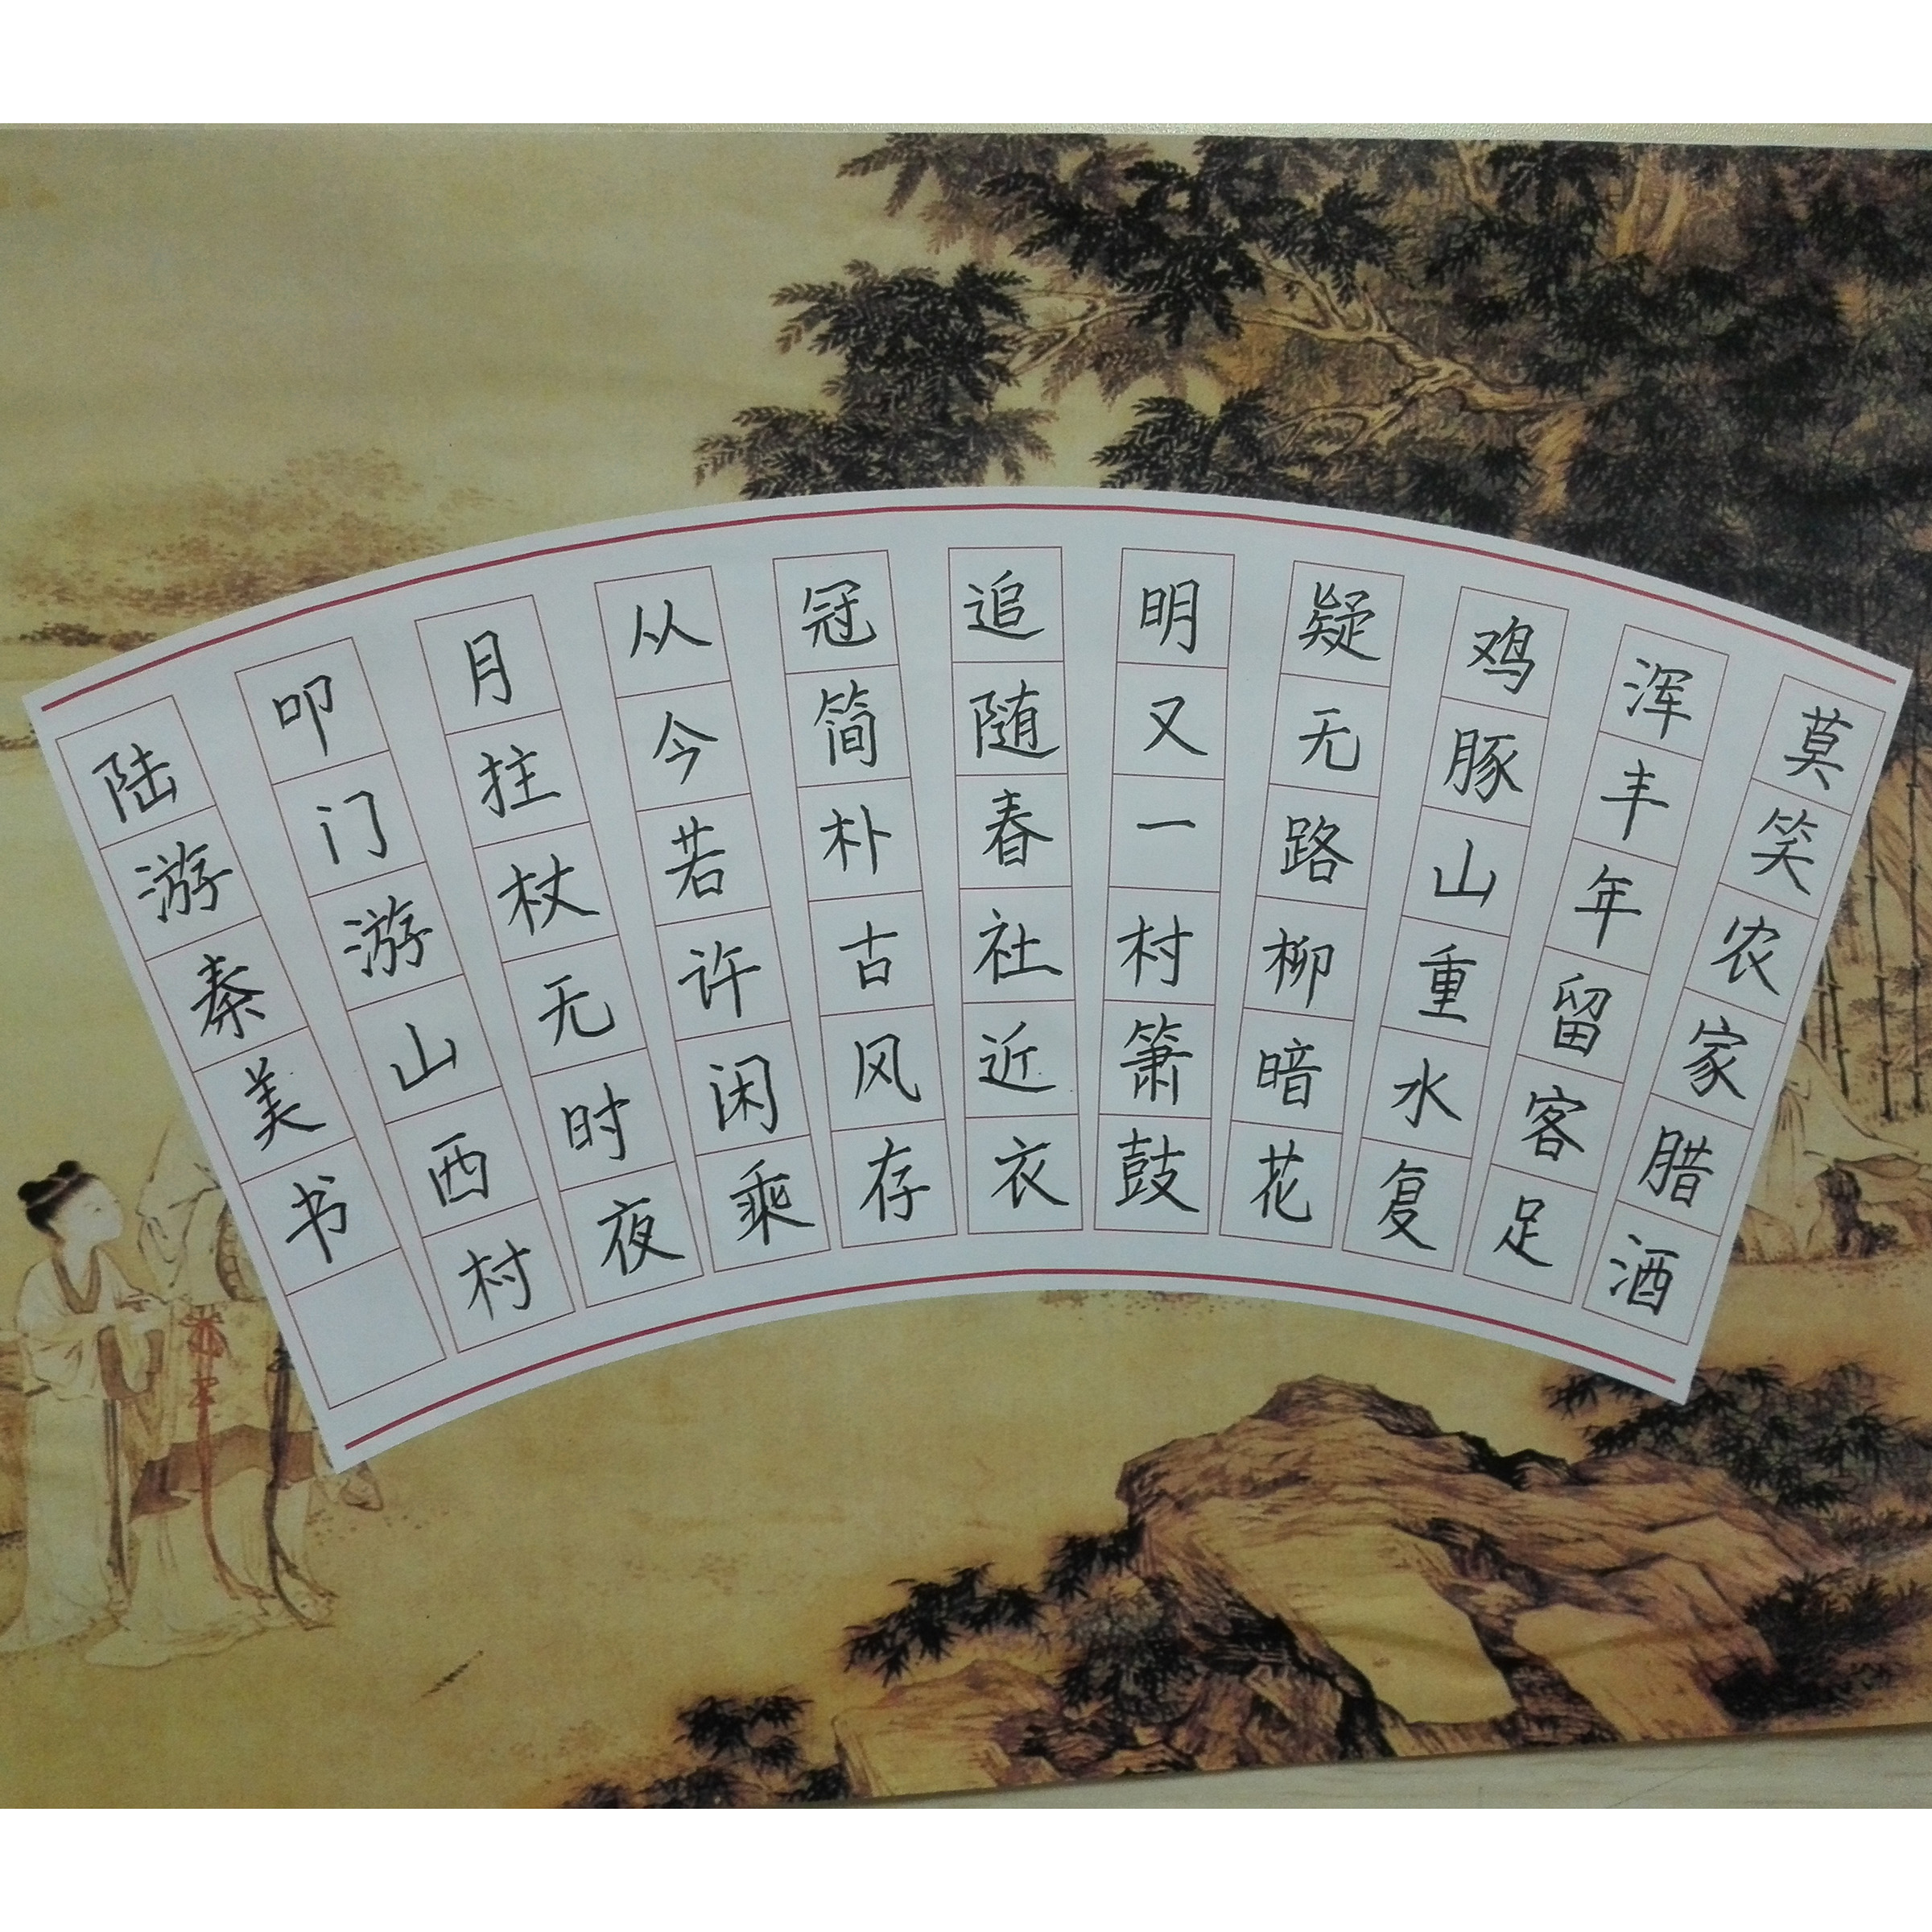 莫笑农家腊酒
浑丰年留客足
鸡豚山重水复
疑无路柳暗花
明又一村箫鼓
追随春社近衣
冠简朴古风存
从今若许闲乘
月拄杖无时夜
叩门游山西村
陆游秦美书